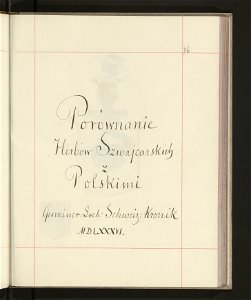 76
Porównanie
Herbów Szwajcarskich
z
Polskimi
Gemeiner Loeb: Schweiz: Kronik
MDLXXXVI.